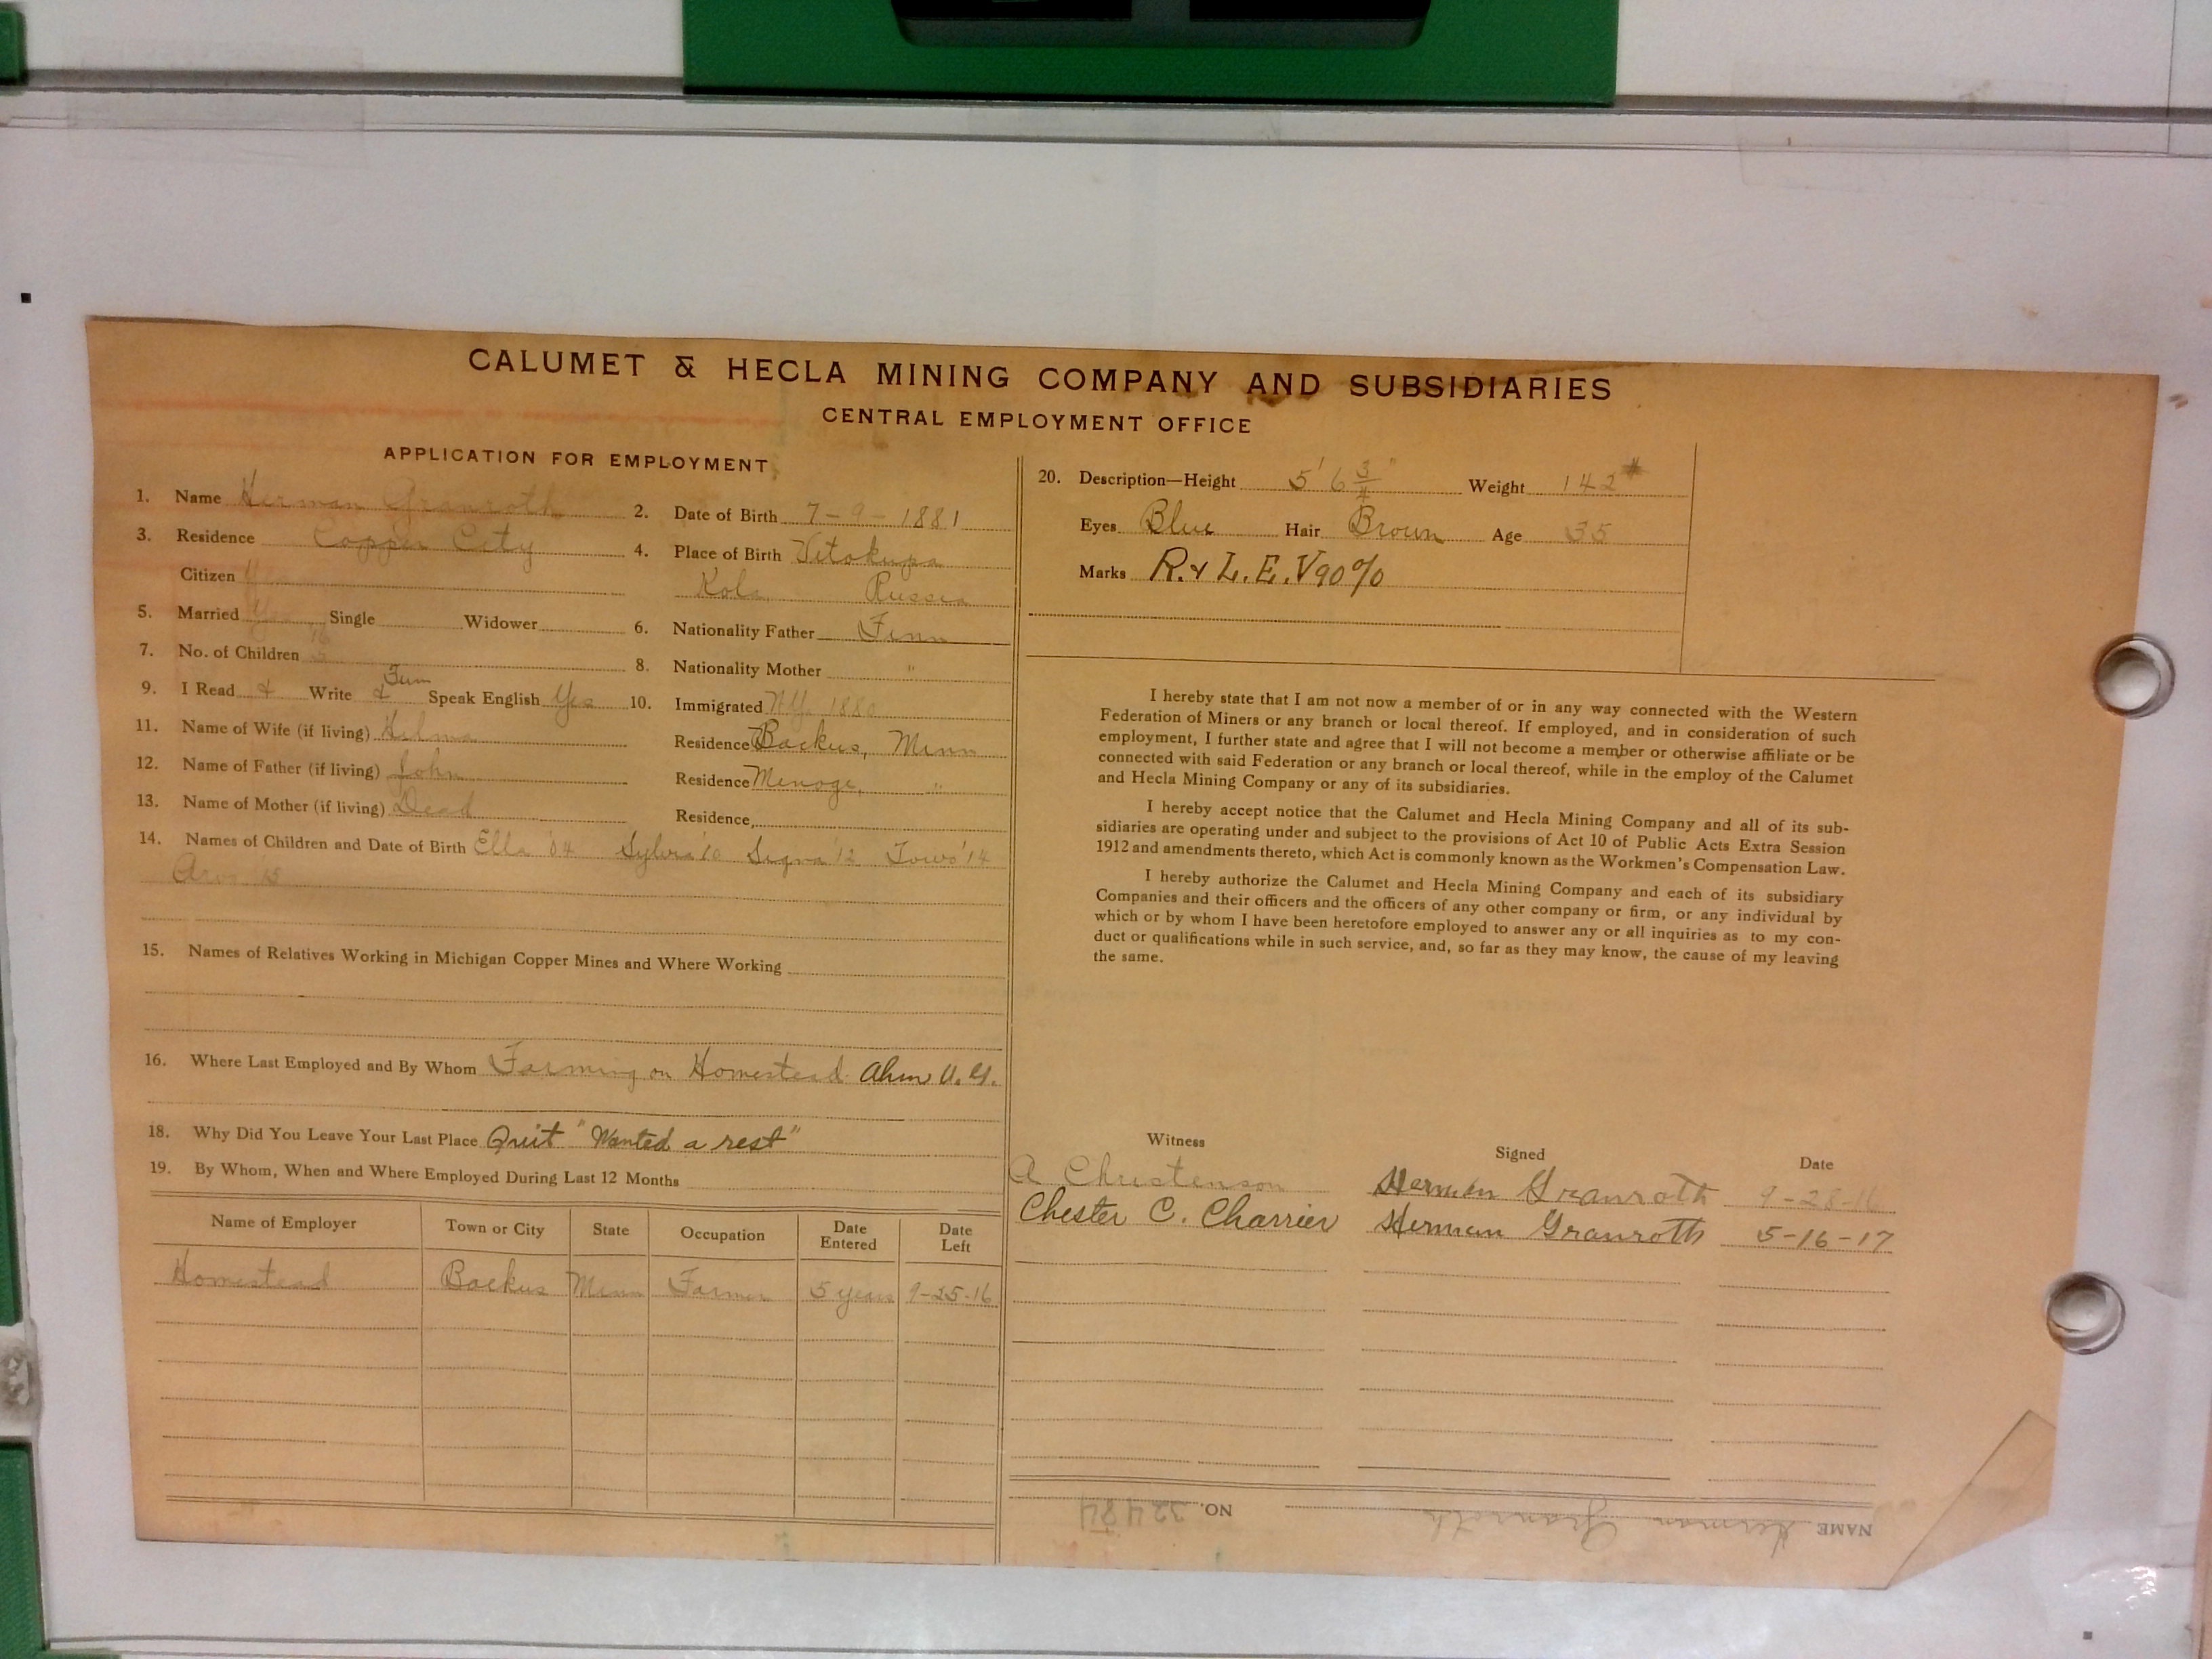 CALUMET & HECLA MINING COMPANY AND SUBSIDIARIES
CENTRAL EMPLOYMENT OFFICE
APPLICATION FOR EMPLOYMENT
1. Name Herman Granroth
2. Date of Birth 7-9-1881
3. Residence Copper City
4. Place of Birth
Kola Russia
Citizen
5. Married Single Widower
6. Nationality Father Finn
7. No. of Children
8. Nationality Mother "
9. I Read & Write & Finn Speak English Yes
10. Immigrated N.Y.
11. Name of Wife (if living) Hilma
Residence Backus, Minn
12. Name of Father (if living) John
Residence "
13. Name of Mother (if living) Dead
Residence,
14. Names of Children and Date of Birth Ella '04 Sylvia '10 '12 '14
'15
15. Names of Relatives Working in Michigan Copper Mines and Where Working
16. Where Last Employed and By Whom Farming on Homestead
18. Why Did You Leave Your Last Place Quit "Wanted a rest"
19. By Whom, When and Where Employed During Last 12 Months
Name of Employer Town or City State Occupation Date Entered Date Left
Homestead Backus Minn Farmer 5 years 9-25-16
20. Description—Height 5' 6 3/4" Weight 142 #
Eyes Blue Hair Brown Age 35
Marks R. & L. E. V 90%
I hereby state that I am not now a member of or in any way connected with the Western
Federation of Miners or any branch or local thereof. If employed, and in consideration of such
employment, I further state and agree that I will not become a member or otherwise affiliate or be
connected with said Federation or any branch or local thereof, while in the employ of the Calumet
and Hecla Mining Company or any of its subsidiaries.
I hereby accept notice that the Calumet and Hecla Mining Company and all of its sub-
sidiaries are operating under and subject to the provisions of Act 10 of Public Acts Extra Session
1912 and amendments thereto, which Act is commonly known as the Workmen's Compensation Law.
I hereby authorize the Calumet and Hecla Mining Company and each of its subsidiary
Companies and their officers and the officers of any other company or firm, or any individual by
which or by whom I have been heretofore employed to answer any or all inquiries as to my con-
duct or qualifications while in such service, and, so far as they may know, the cause of my leaving
the same.
Witness Signed Date
A Christenson Herman Granroth 9-28-16
Chester C. Charrier Herman Granroth 5-16-17
NAME Herman Granroth NO. 32484